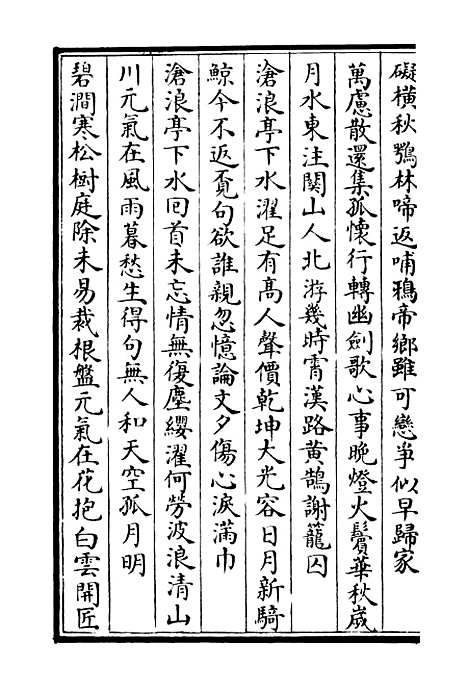 礙橫秋鶚林啼返哺鴉帝鄉雖可戀爭似早歸家
萬慮散還集孤懷行轉幽劍歌心事晚燈火鬢華秋歲
月水東注關山人北游幾時霄漢路黄鵠謝籠囚
滄浪亭下水濯足有高人聲價乾坤大光容日月新騎
鯨今不返覔句欲誰親忽憶論文夕傷心淚滿巾
滄浪亭下水回首未忘情無復塵纓濯何勞波浪清山
川元氣在風雨暮愁生得句無人和天空孤月明
碧澗寒松樹庭除未易栽根盤元氣在花抱白雲開匠